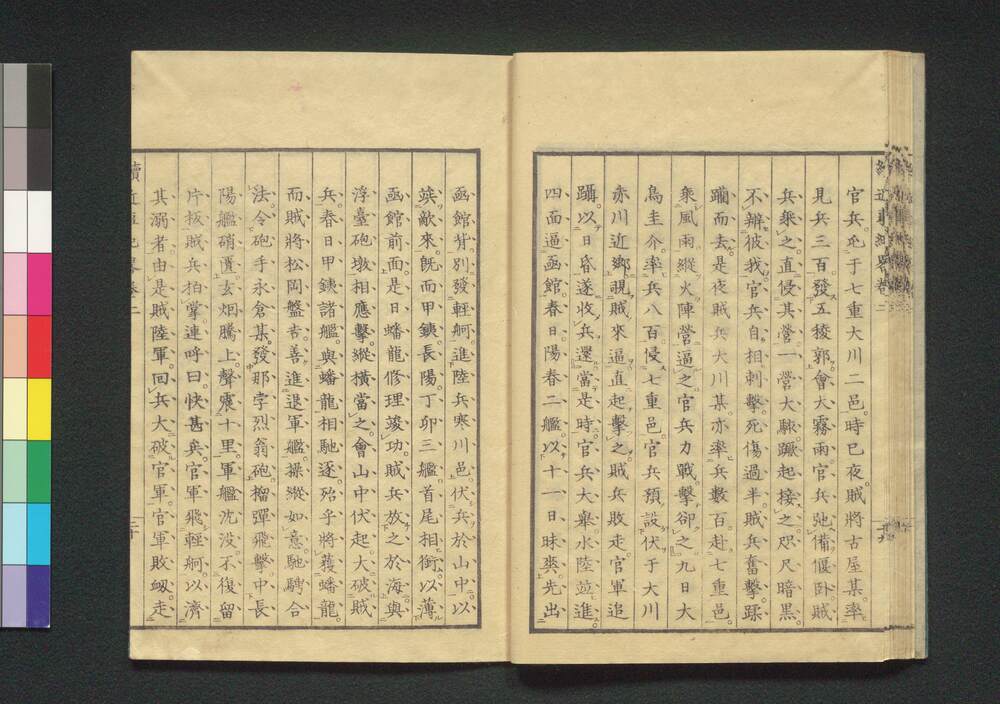 官兵屯于七重大川二邑。時已夜。賊將古屋某。率
見兵三百發五稜郭。會大霧雨官兵弛備偃臥賊
兵乘之直侵其營一營大駭蹶起接之咫尺暗黑。
不辨彼我。官兵自相刺擊。死傷過半。賊兵奮擊。蹂
躪而去。是夜賊兵大川某。亦率兵數百。赴七重邑。
乘風雨縱火陣營逼之官兵力戰擊卻之九日大
鳥圭介。率兵八百侵七重邑。官兵預設伏于大川
赤川近鄉。覘賊來逼。直起擊之賊兵敗走官軍追
躡。以日昏遂收兵還。當是時。官兵大舉。水陸竝進。
四面逼函館。春日陽春二艦。以十一日昧爽。先出
函館背。別發輕舸。進陸兵寒川邑。伏兵於山中。以
竢敵來。既而甲銕。長陽。丁卯三艦。首尾相銜。以薄
函館前面。是日蟠龍。修理竣功。賊兵放之於海。與
浮臺砲墩相應擊。縱橫當之。會山中伏起。大破賊
兵。春日甲銕諸艦。與蟠龍相馳逐。殆乎將獲蟠龍。
而賊將松岡盤吉。善進退軍艦。操縱如意。馳騁合
法。令砲手永倉某。發那孛烈翁砲。榴彈飛擊。中長
陽艦硝匱。玄烟騰上。聲震十里。軍艦沈没。不復留
片板。賊兵拍掌連呼曰。快甚矣。官軍飛輕舸。以濟
其溺者。由是賊陸軍。回兵大破官軍。官軍敗衂。走